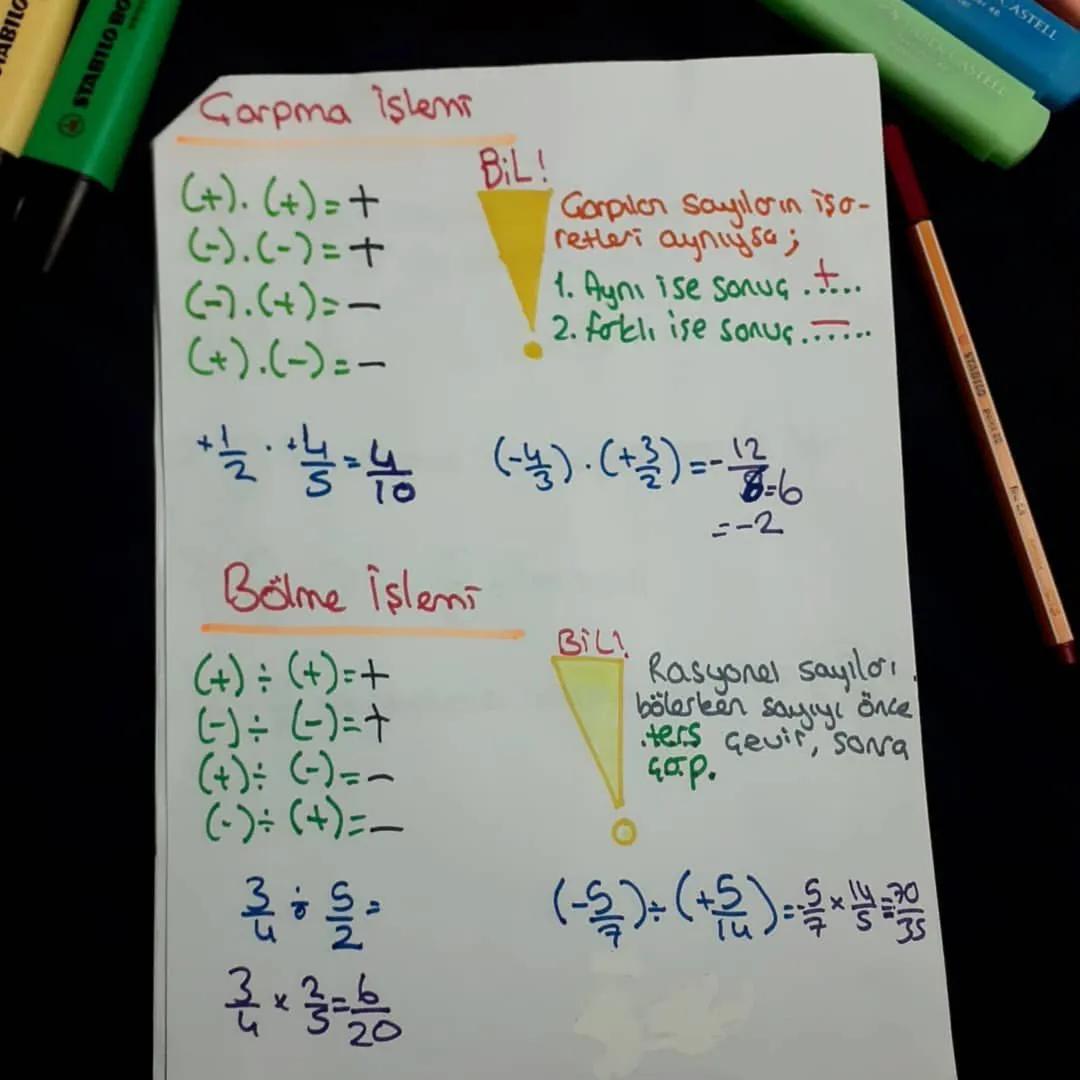 STABILO
STABILO BO
CASTELL
CASTELL
STABILO
Çarpma İşlemi
(+).(+)=+
(-).(-)=+
(-).(+)=-
(+).(-)=-
BİL!
Çarpılan sayıların işa-
retleri aynıysa;
1. Aynı ise sonuç ..+...
2. farklı ise sonuç ..—....
+1/2 · +4/5 = 4/10
(-4/3) · (+3/2) = -12/6=6
=-2
Bölme İşlemi
(+) ÷ (+)=+
(-) ÷ (-)=+
(+) ÷ (-)=-
(-) ÷ (+)=-
BİL!
Rasyonel sayıları
bölerken sayıyı önce
.ters çevir, sonra
çarp.
3/4 ÷ 5/2 =
3/4 × 2/5 = 6/20
(-5/7) ÷ (+5/14) = -5/7 × 14/5 = -70/35